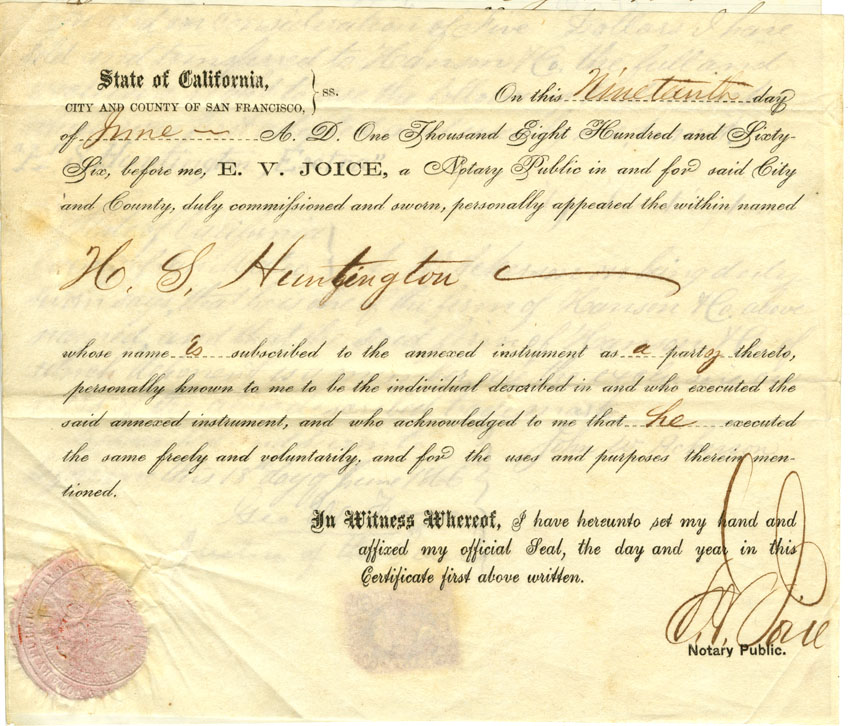 State of California,
CITY AND COUNTY OF SAN FRANCISCO, } ss.
On this Nineteenth day
of June A. D. One Thousand Eight Hundred and Sixty-
Six, before me, E. V. JOICE, a Notary Public in and for said City
and County, duly commissioned and sworn, personally appeared the within named
H. S. Huntington
whose name is subscribed to the annexed instrument as a party thereto,
personally known to me to be the individual described in and who executed the
said annexed instrument, and who acknowledged to me that he executed
the same freely and voluntarily, and for the uses and purposes therein men-
tioned.
In Witness Whereof, I have hereunto set my hand and
affixed my official Seal, the day and year in this
Certificate first above written.
E. V. Joice
Notary Public.